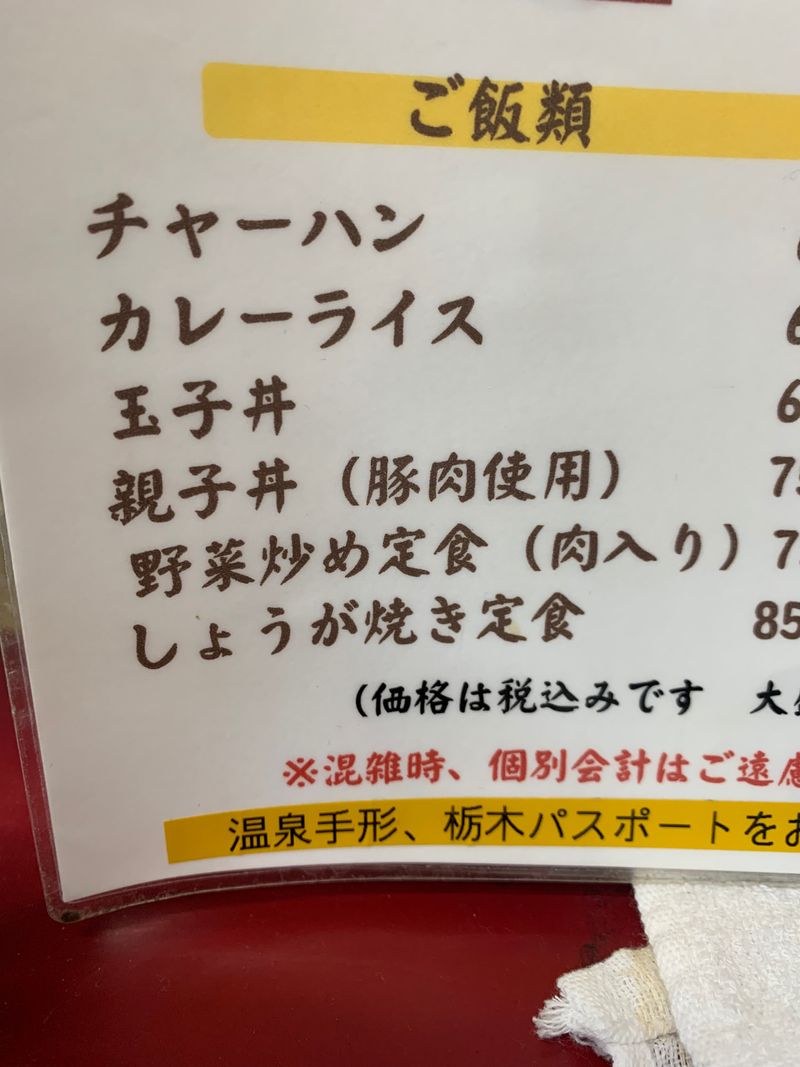 ご飯類
チャーハン
カレーライス
玉子丼 6
親子丼（豚肉使用） 7
野菜炒め定食（肉入り） 7
しょうが焼き定食 85
(価格は税込みです 大
※混雑時、個別会計はご遠慮
温泉手形、栃木パスポートをお